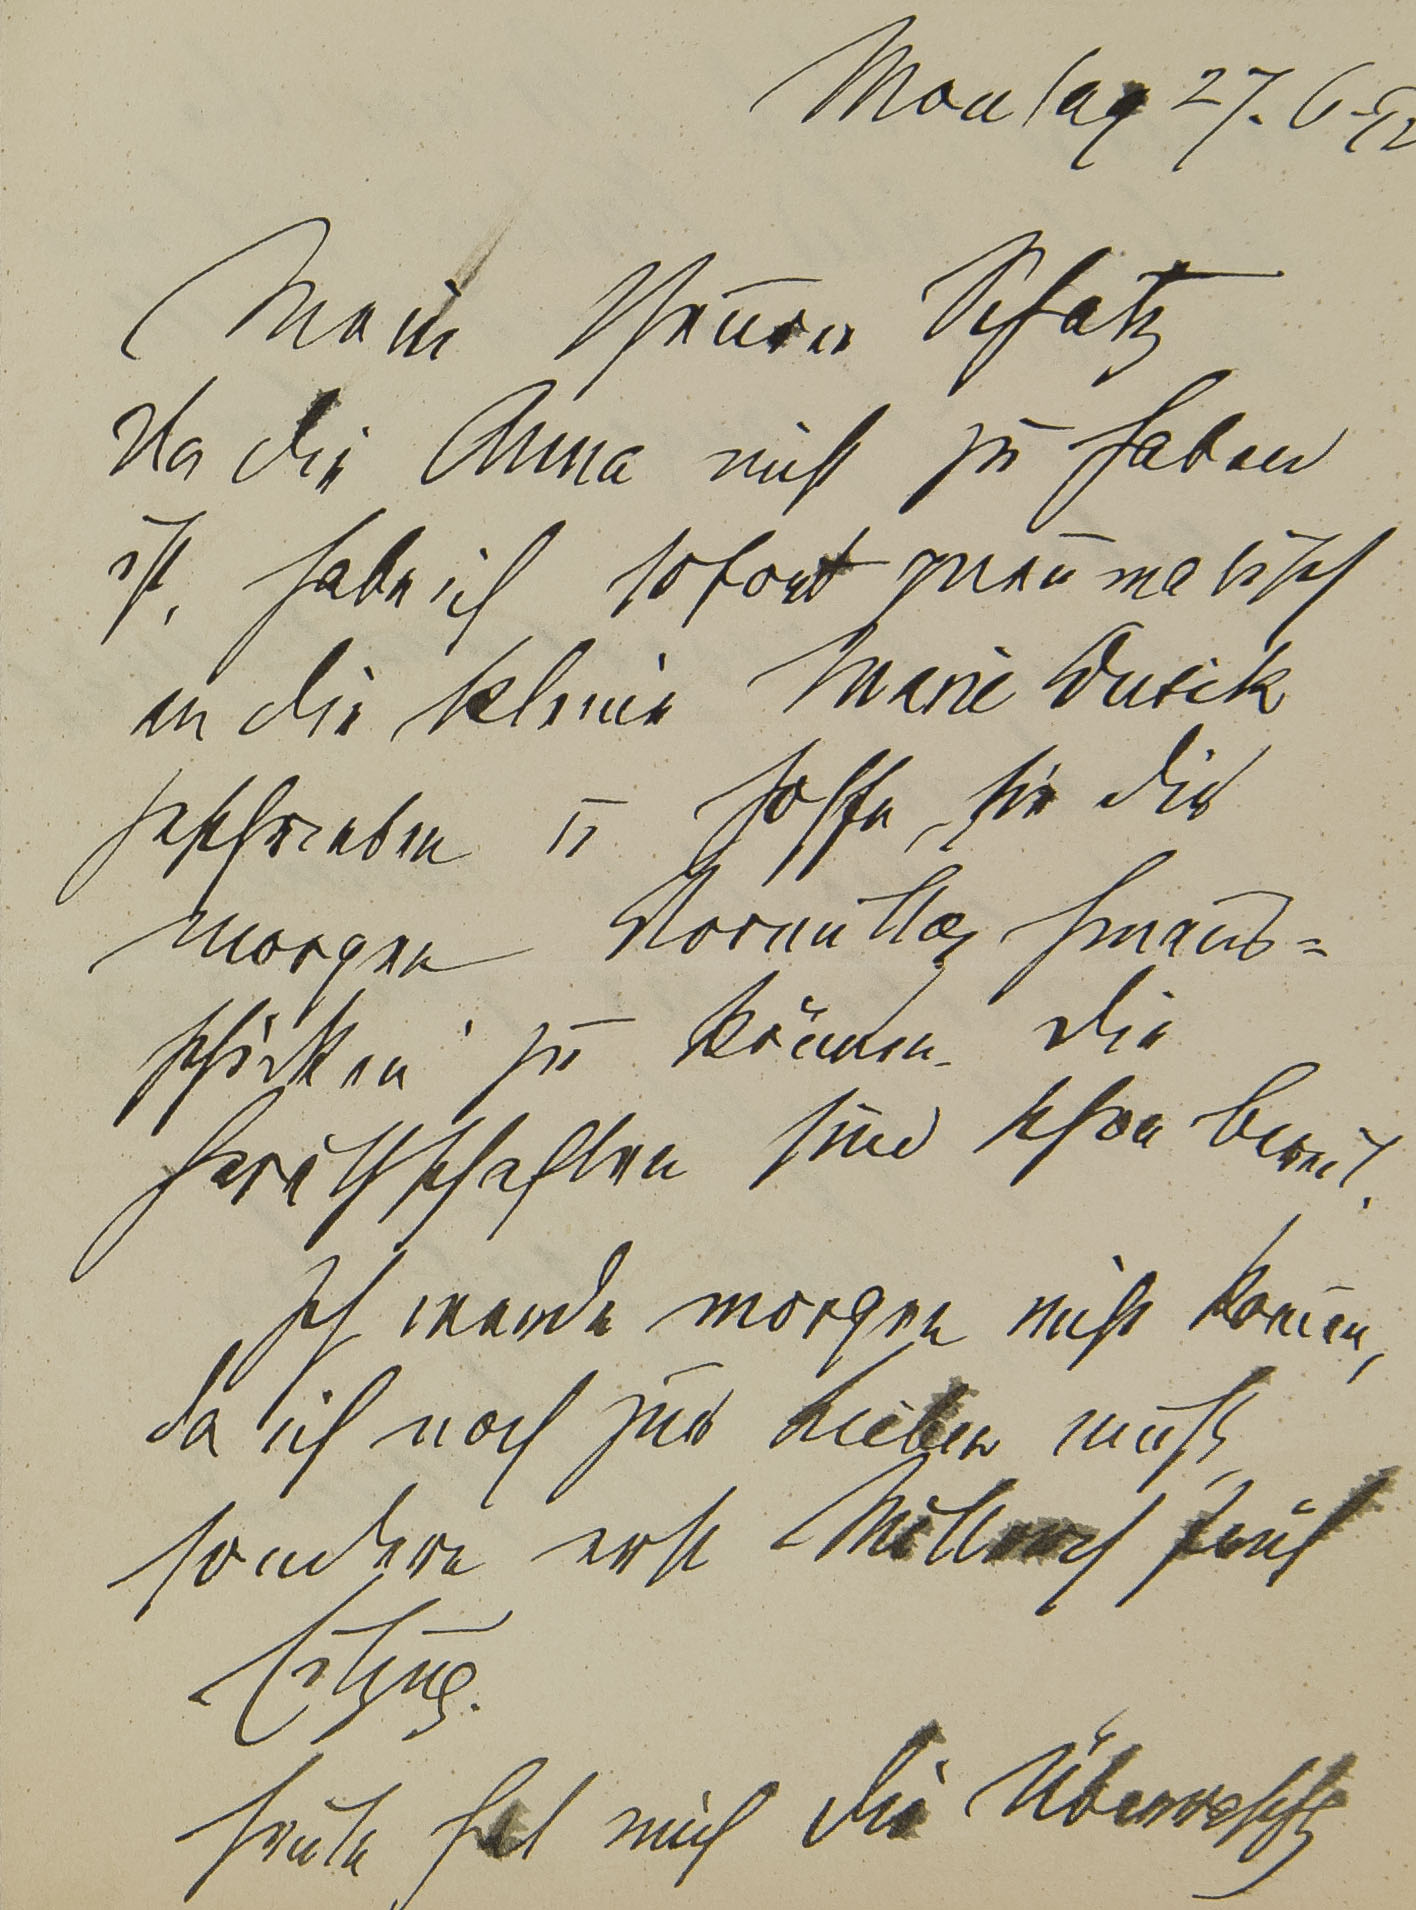 Montag 27. 6. 92
Mein theurer Schatz
Da die Anna nicht zu haben
ist, habe ich sofort pneumatisch
an die kleine Marie Dusik
geschrieben u hoffe, sie Dir
morgen Vormittag hinaus=
schicken zu können. Die
Geräthschaften sind schon bereit.
Ich werde morgen nicht komen,
da ich noch zur Lieben muß,
sondern erst Mittwoch früh
Eilzug.
Heute hat mich die